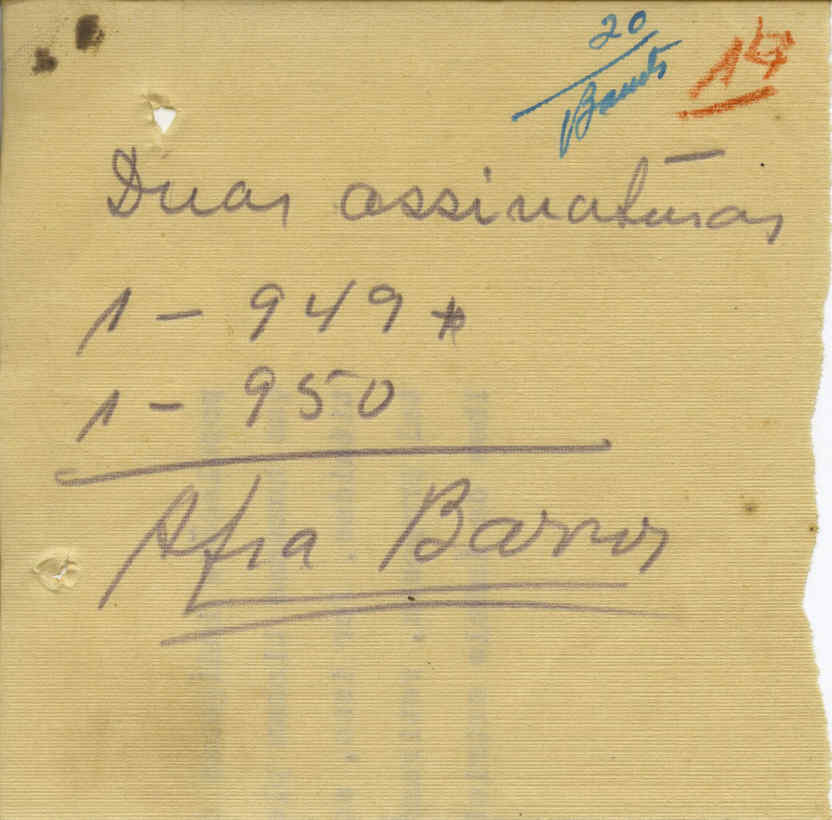 20
14
Duas assinaturas
1 - 949
1 - 950
Afra Barros